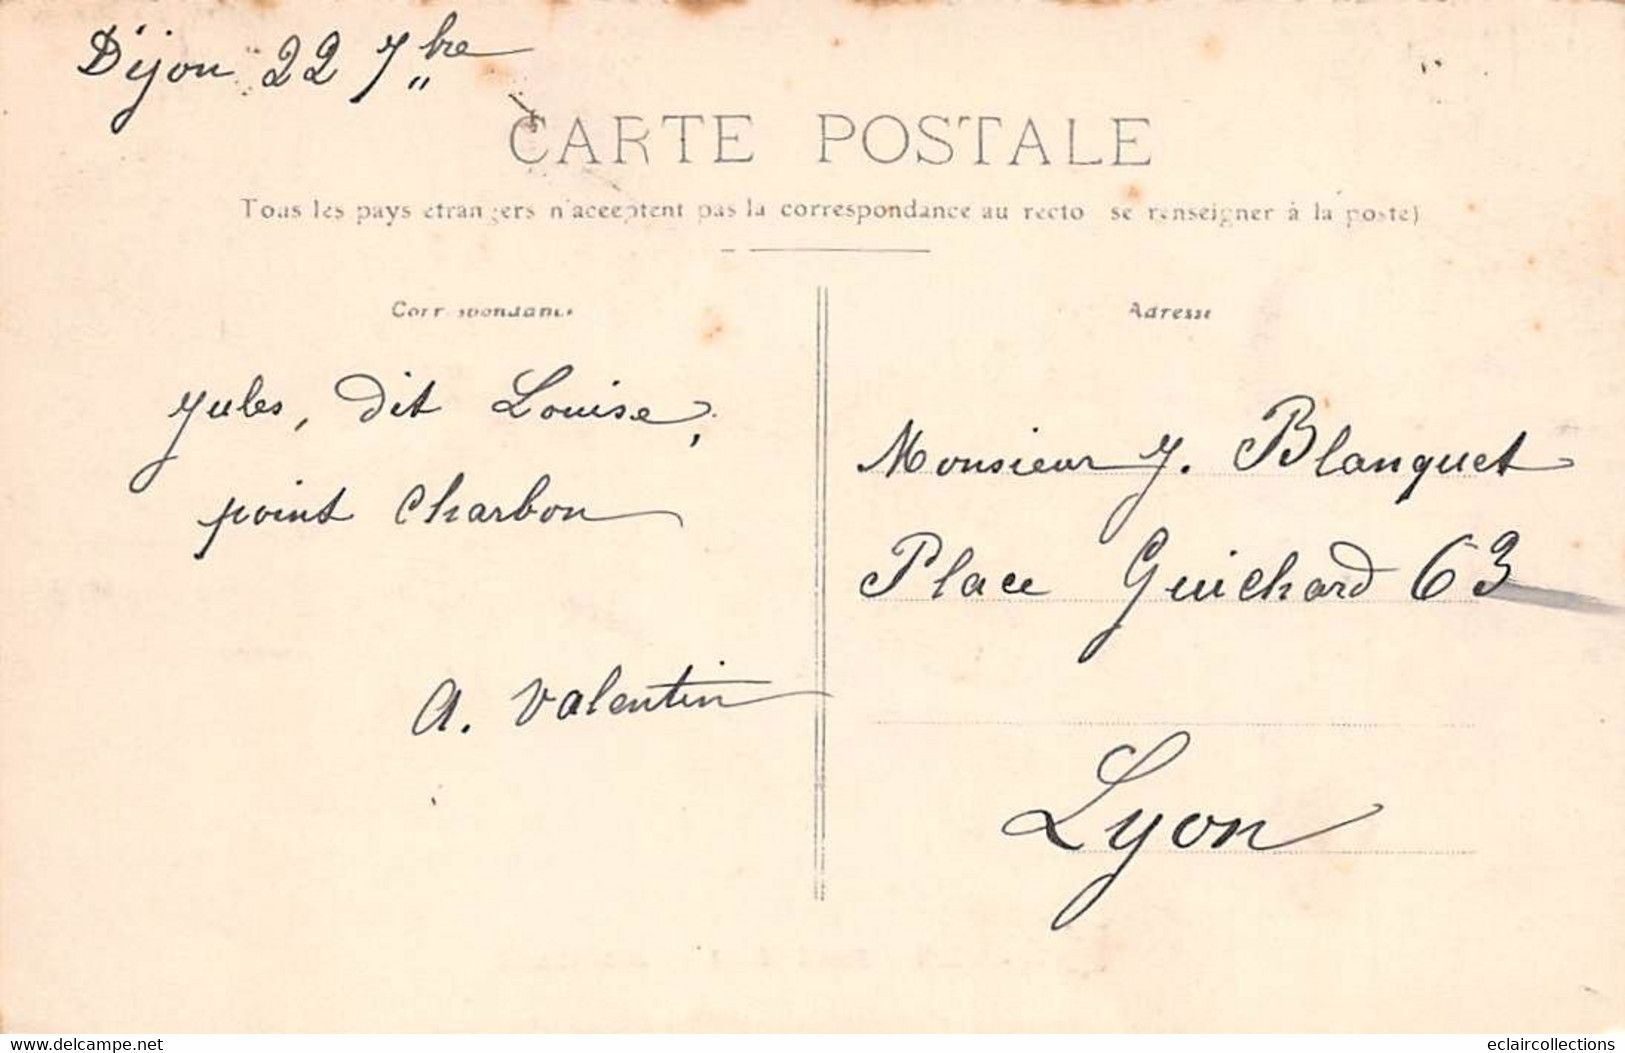 Dijon 22 7bre
CARTE POSTALE
Tous les pays étrangers n'acceptent pas la correspondance au recto se renseigner à la poste)
Correspondance
Adresse
Jules, dit Louise,
point Charbon
A. Valentin
Monsieur J. Blanquet
Place Guichard 63
Lyon
www.delcampe.net
eclaircollections